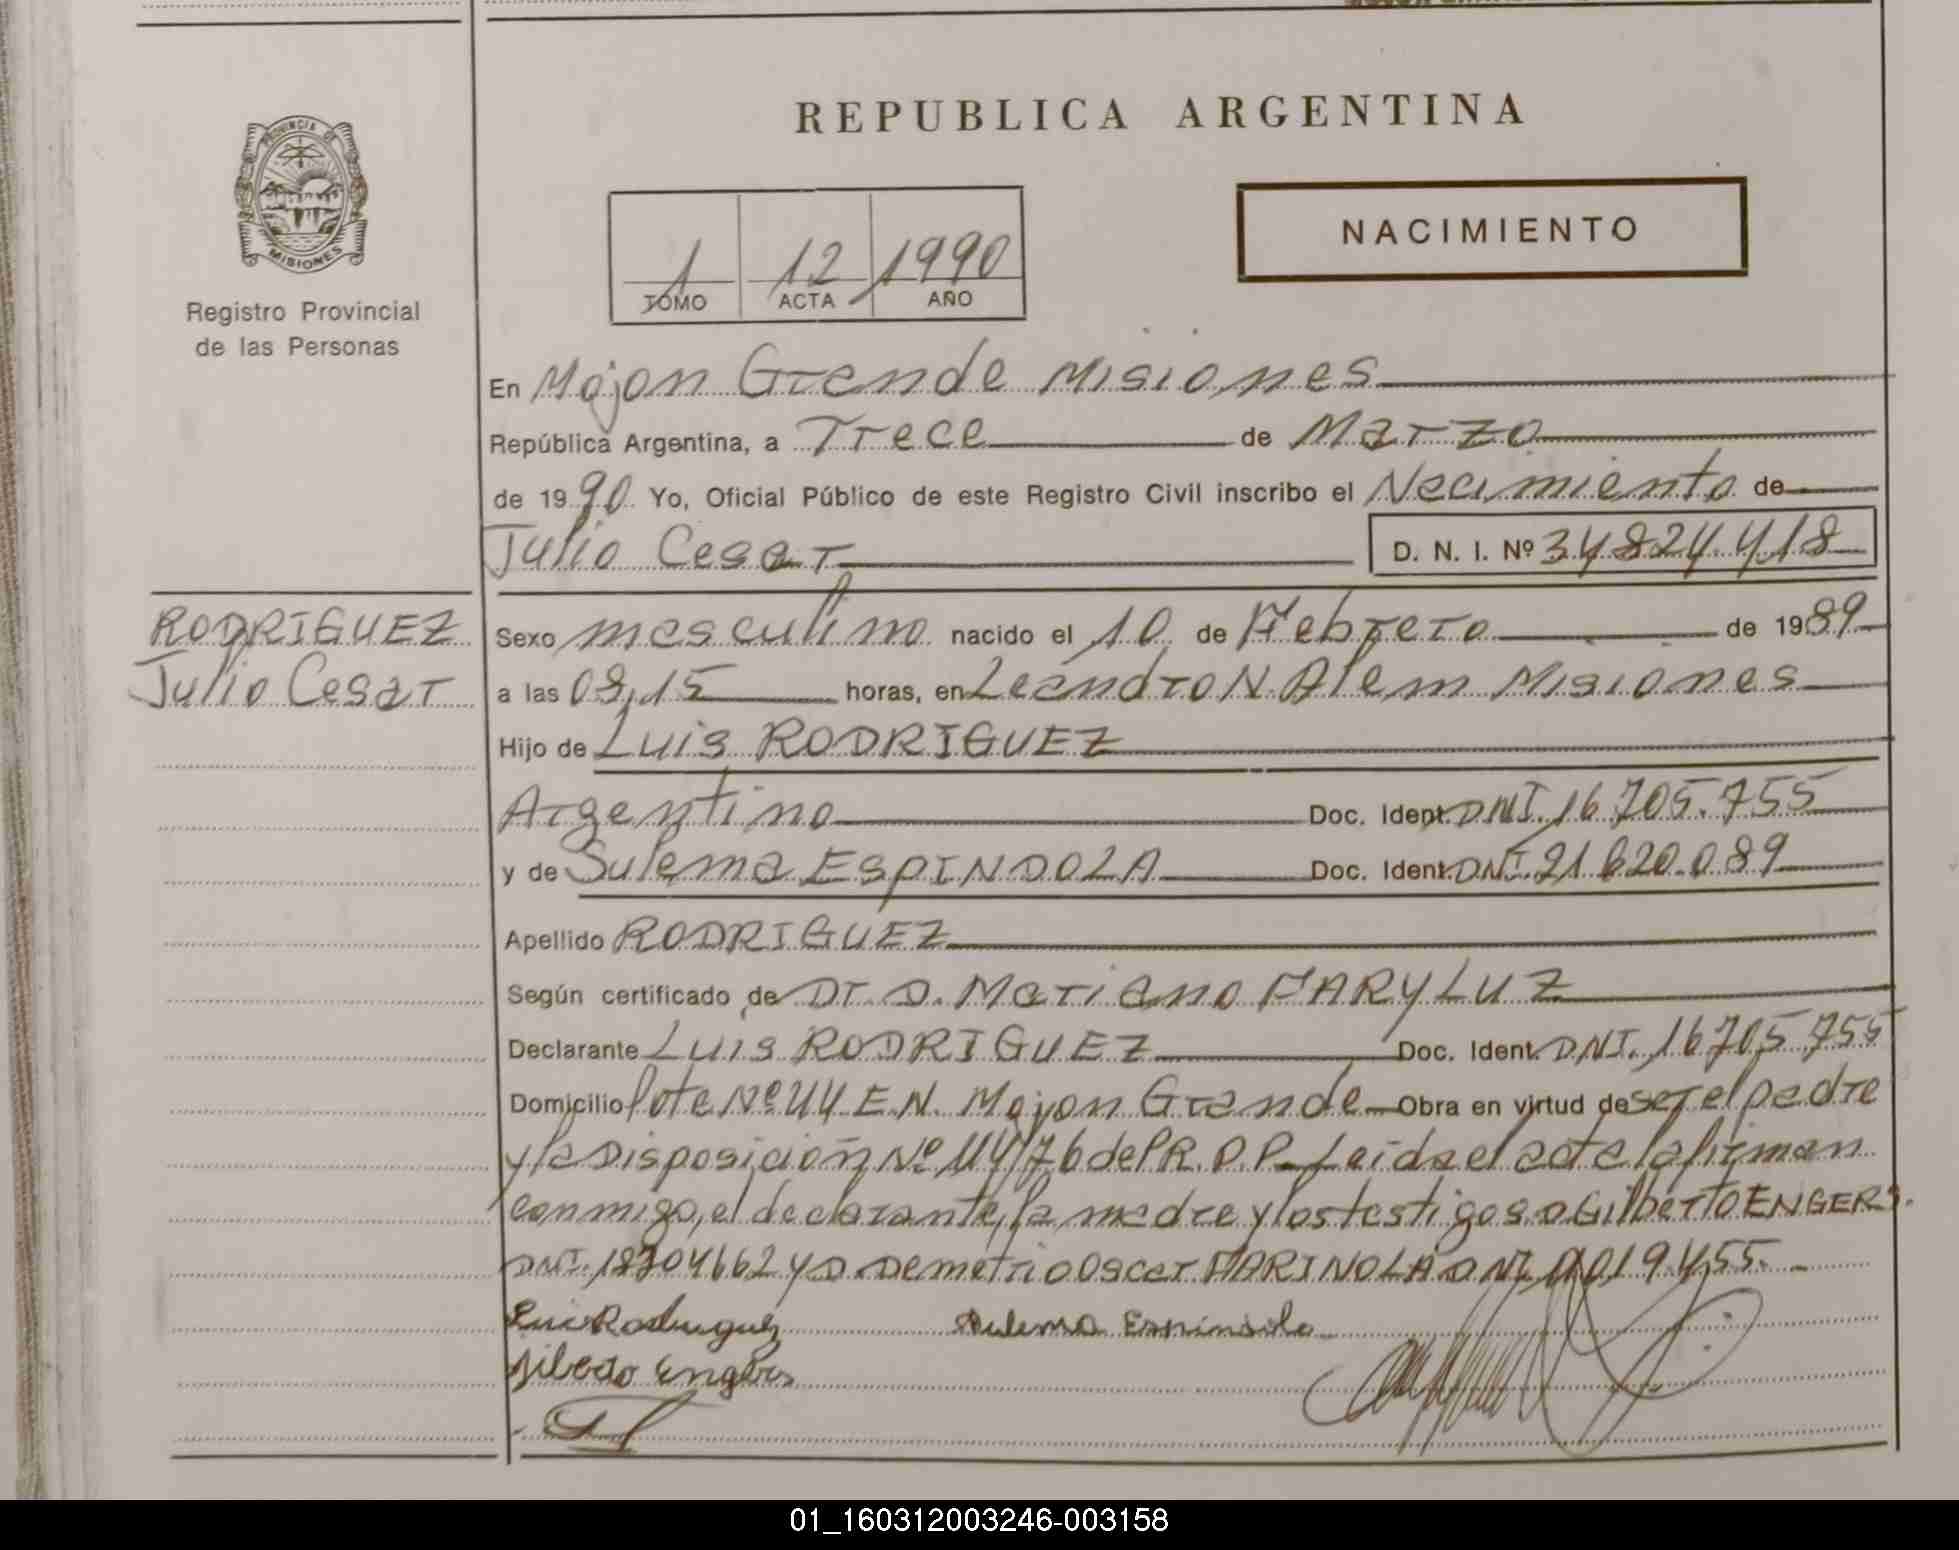 REPUBLICA ARGENTINA
PROVINCIA DE
MISIONES
Registro Provincial
de las Personas
1 12 1990
TOMO ACTA AÑO
NACIMIENTO
En Mojon Grande Misiones
República Argentina, a Trece de Marzo
de 1990 Yo, Oficial Público de este Registro Civil inscribo el Nacimiento de
Julio Cesar D. N. I. Nº 34824.418
RODRIGUEZ
Julio Cesar
Sexo masculino nacido el 10 de Febrero de 1989
a las 08,15 horas, en Leandro N. Alem Misiones
Hijo de Luis RODRIGUEZ
Argentino Doc. Ident. DNI. 16.705.755
y de Sulema ESPINDOLA Doc. Ident. DNI. 21.620.089
Apellido RODRIGUEZ
Según certificado de Dr. D. Mariano FARYLUZ
Declarante Luis RODRIGUEZ Doc. Ident. DNI. 16705.755
Domicilio lote Nº 44 E.N. Mojon Grande Obra en virtud de ser el padre
y la Disposición Nº 114/76 del R.P.P. Leida el acta la firman
conmigo, el declarante, la madre y los testigos D Gilberto ENGERS.
DNI. 18304662 y D. Demetrio Oscar MARINOLA DNI
Luis Rodriguez Sulema Espindola
Gilberto Engers
01_160312003246-003158